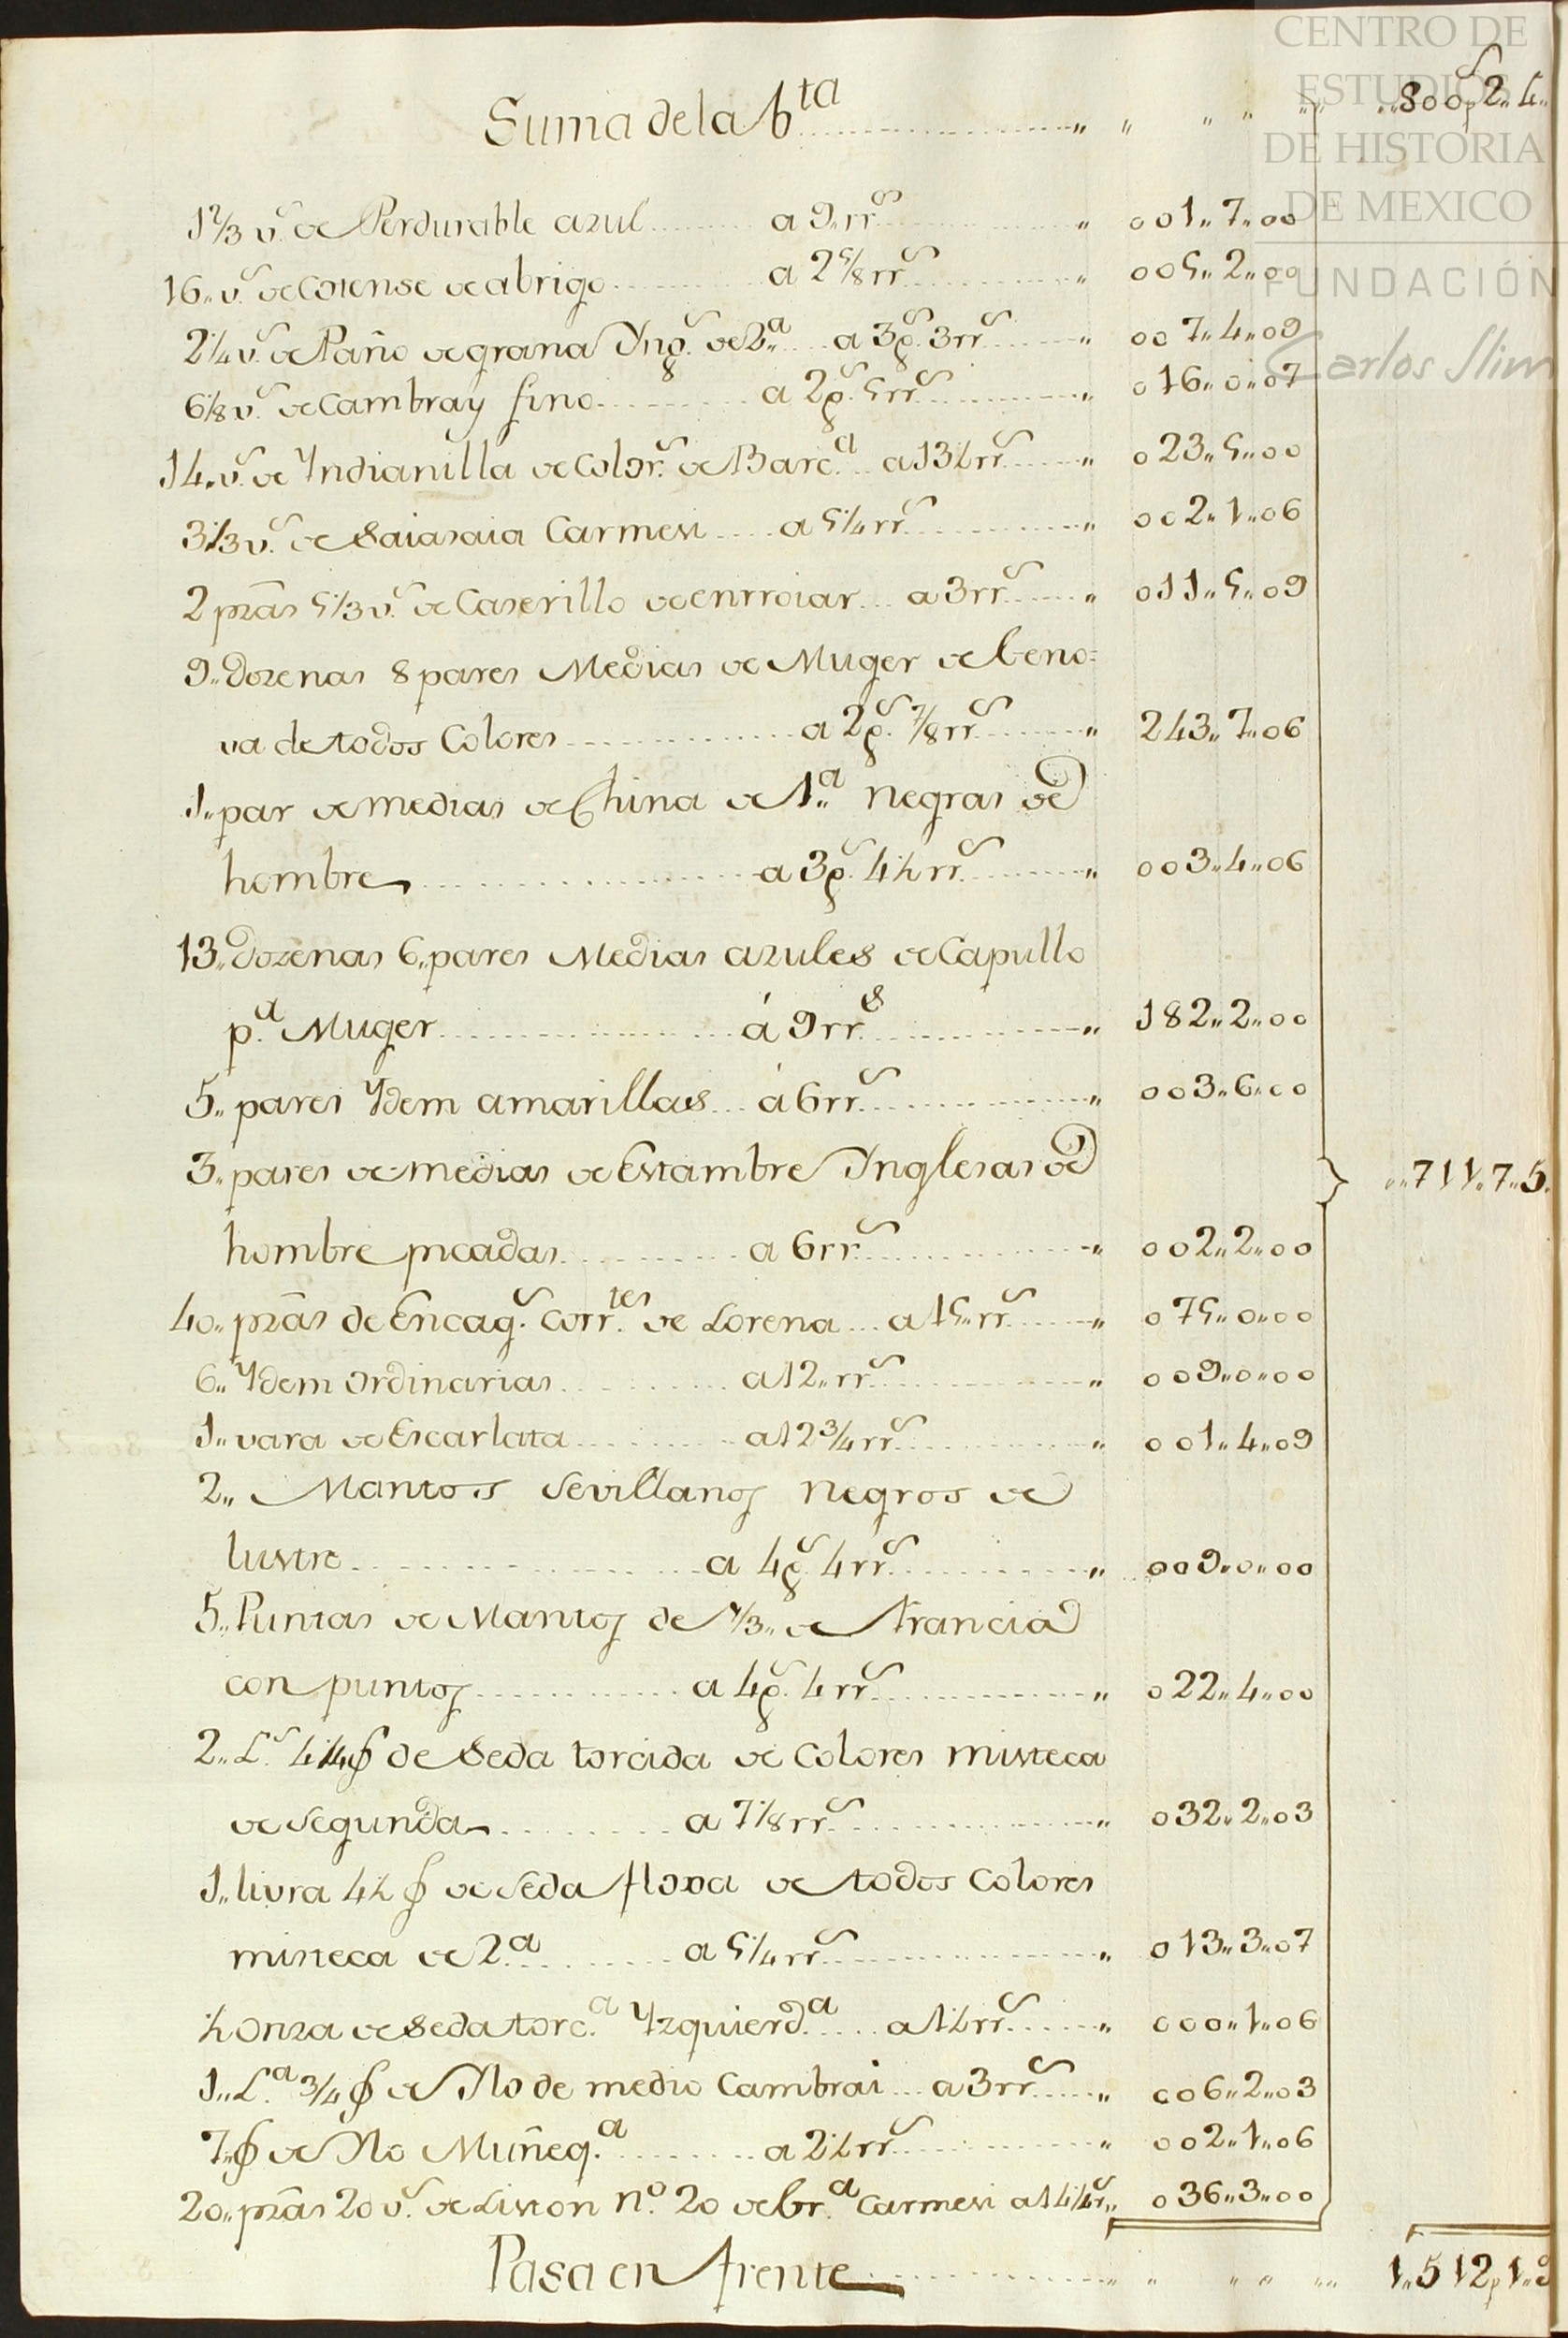 CENTRO DE
ESTUDIOS
DE HISTORIA
DE MEXICO
FUNDACIÓN
Carlos Slim
Suma de la 6ta ,, 800ps 2,, 4,,
1⅔ vs. de Perdurable azul a 9,, rrs ,, 001,, 7,, 00
16,, vs. de Cotense de abrigo a 2⅝ rrs ,, 005,, 2,, 00
2¼ vs. de Paño de grana Yngs. de 2,,a a 3ps. 3rrs ,, 007,, 4,, 09
6⅛ vs. de Cambray fino a 2ps. 5rrs ,, 016,, 0,, 07
14,, vs. de Yndianilla de Colors. de Barca. a 13½ rrs ,, 023,, 5,, 00
3⅓ vs. de Saiasaia Carmesi a 5¼ rrs ,, 002,, 1,, 06
2 pzas 5⅓ vs. de Caserillo de enrroiar a 3rrs ,, 011,, 5,, 09
9,, Dozenas 8 pares Medias de Muger de Geno=
va de todos Colores a 2ps. ⅞ rrs ,, 243,, 7,, 06
1,, par de medias de China de 1,,a negras de
hombre a 3ps. 4½ rrs ,, 003,, 4,, 06
13,, Dozenas 6,, pares Medias azules de Capullo
pa. Muger á 9 rrs ,, 182,, 2,, 00
5,, pares Ydem amarillas á 6 rrs ,, 003,, 6,, 00
3,, pares de medias de Estambre Ynglesas de
,, 711,, 7,, 5,,
hombre picadas a 6 rrs ,, 002,, 2,, 00
40,, pzas de Encags. Corrtes. de Lorena a 15,, rrs ,, 075,, 0,, 00
6,, Ydem ordinarias a 12,, rrs ,, 009,, 0,, 00
1,, vara de Escarlata a 12¾ rrs ,, 001,, 4,, 09
2,, Mantos Sevillanos negros de
lustre a 4ps. 4rrs ,, 009,, 0,, 00
5,, Puntas de Mantos de ⅓,, de Francia
con puntos a 4ps. 4rrs ,, 022,, 4,, 00
2,, Ls. 4¼ ℥ de Seda torcida de Colores misteca
de Segunda a 7⅛ rrs ,, 032,, 2,, 03
1,, livra 4½ ℥ de Seda floxa de todos Colores
misteca de 2.a a 5¼ rrs ,, 013,, 3,, 07
½ onza de Seda torca. Yzquierda. a 1½ rrs ,, 000,, 1,, 06
1,, La. ¾ ℥ de Ylo de medio Cambrai a 3rrs ,, 006,, 2,, 03
7,, ℥ de Ylo Muñeqa. a 2½ rrs ,, 002,, 1,, 06
20,, pzas 20 vs. de Liston no. 20 de Gra. Carmesi a 14½ rs,, 036,, 3,, 00
Pasa en frente ,, 1,, 512ps 1,, 9